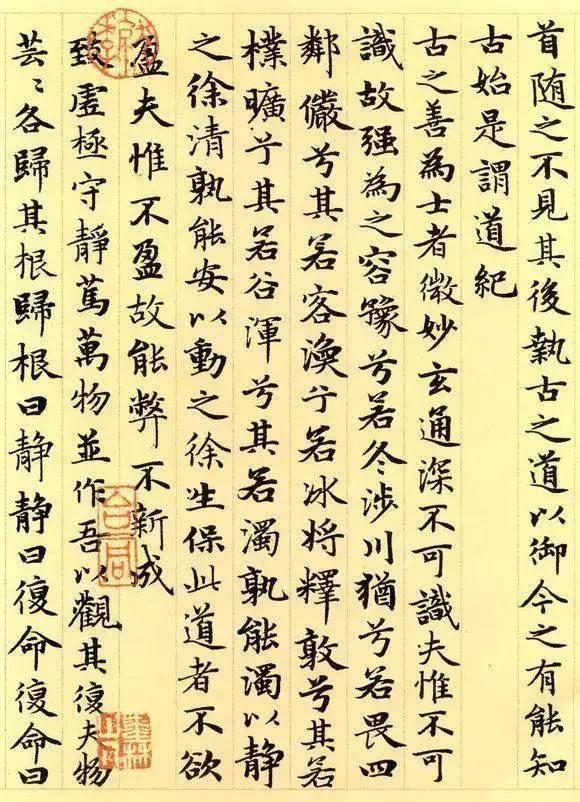 首随之不見其後執古之道以御今之有能知
古始是謂道紀
古之善為士者微妙玄通深不可識夫惟不可
識故强為之容豫兮若冬涉川猶兮若畏四
鄰儼兮其若客渙兮若冰将釋敦兮其若
樸曠兮其若谷渾兮其若濁孰能濁以静
之徐清孰能安以動之徐生保此道者不欲
盈夫惟不盈故能弊不新成
致虛極守靜篤萬物並作吾以觀其復夫物
芸〻各歸其根歸根曰靜靜曰復命復命曰
合同